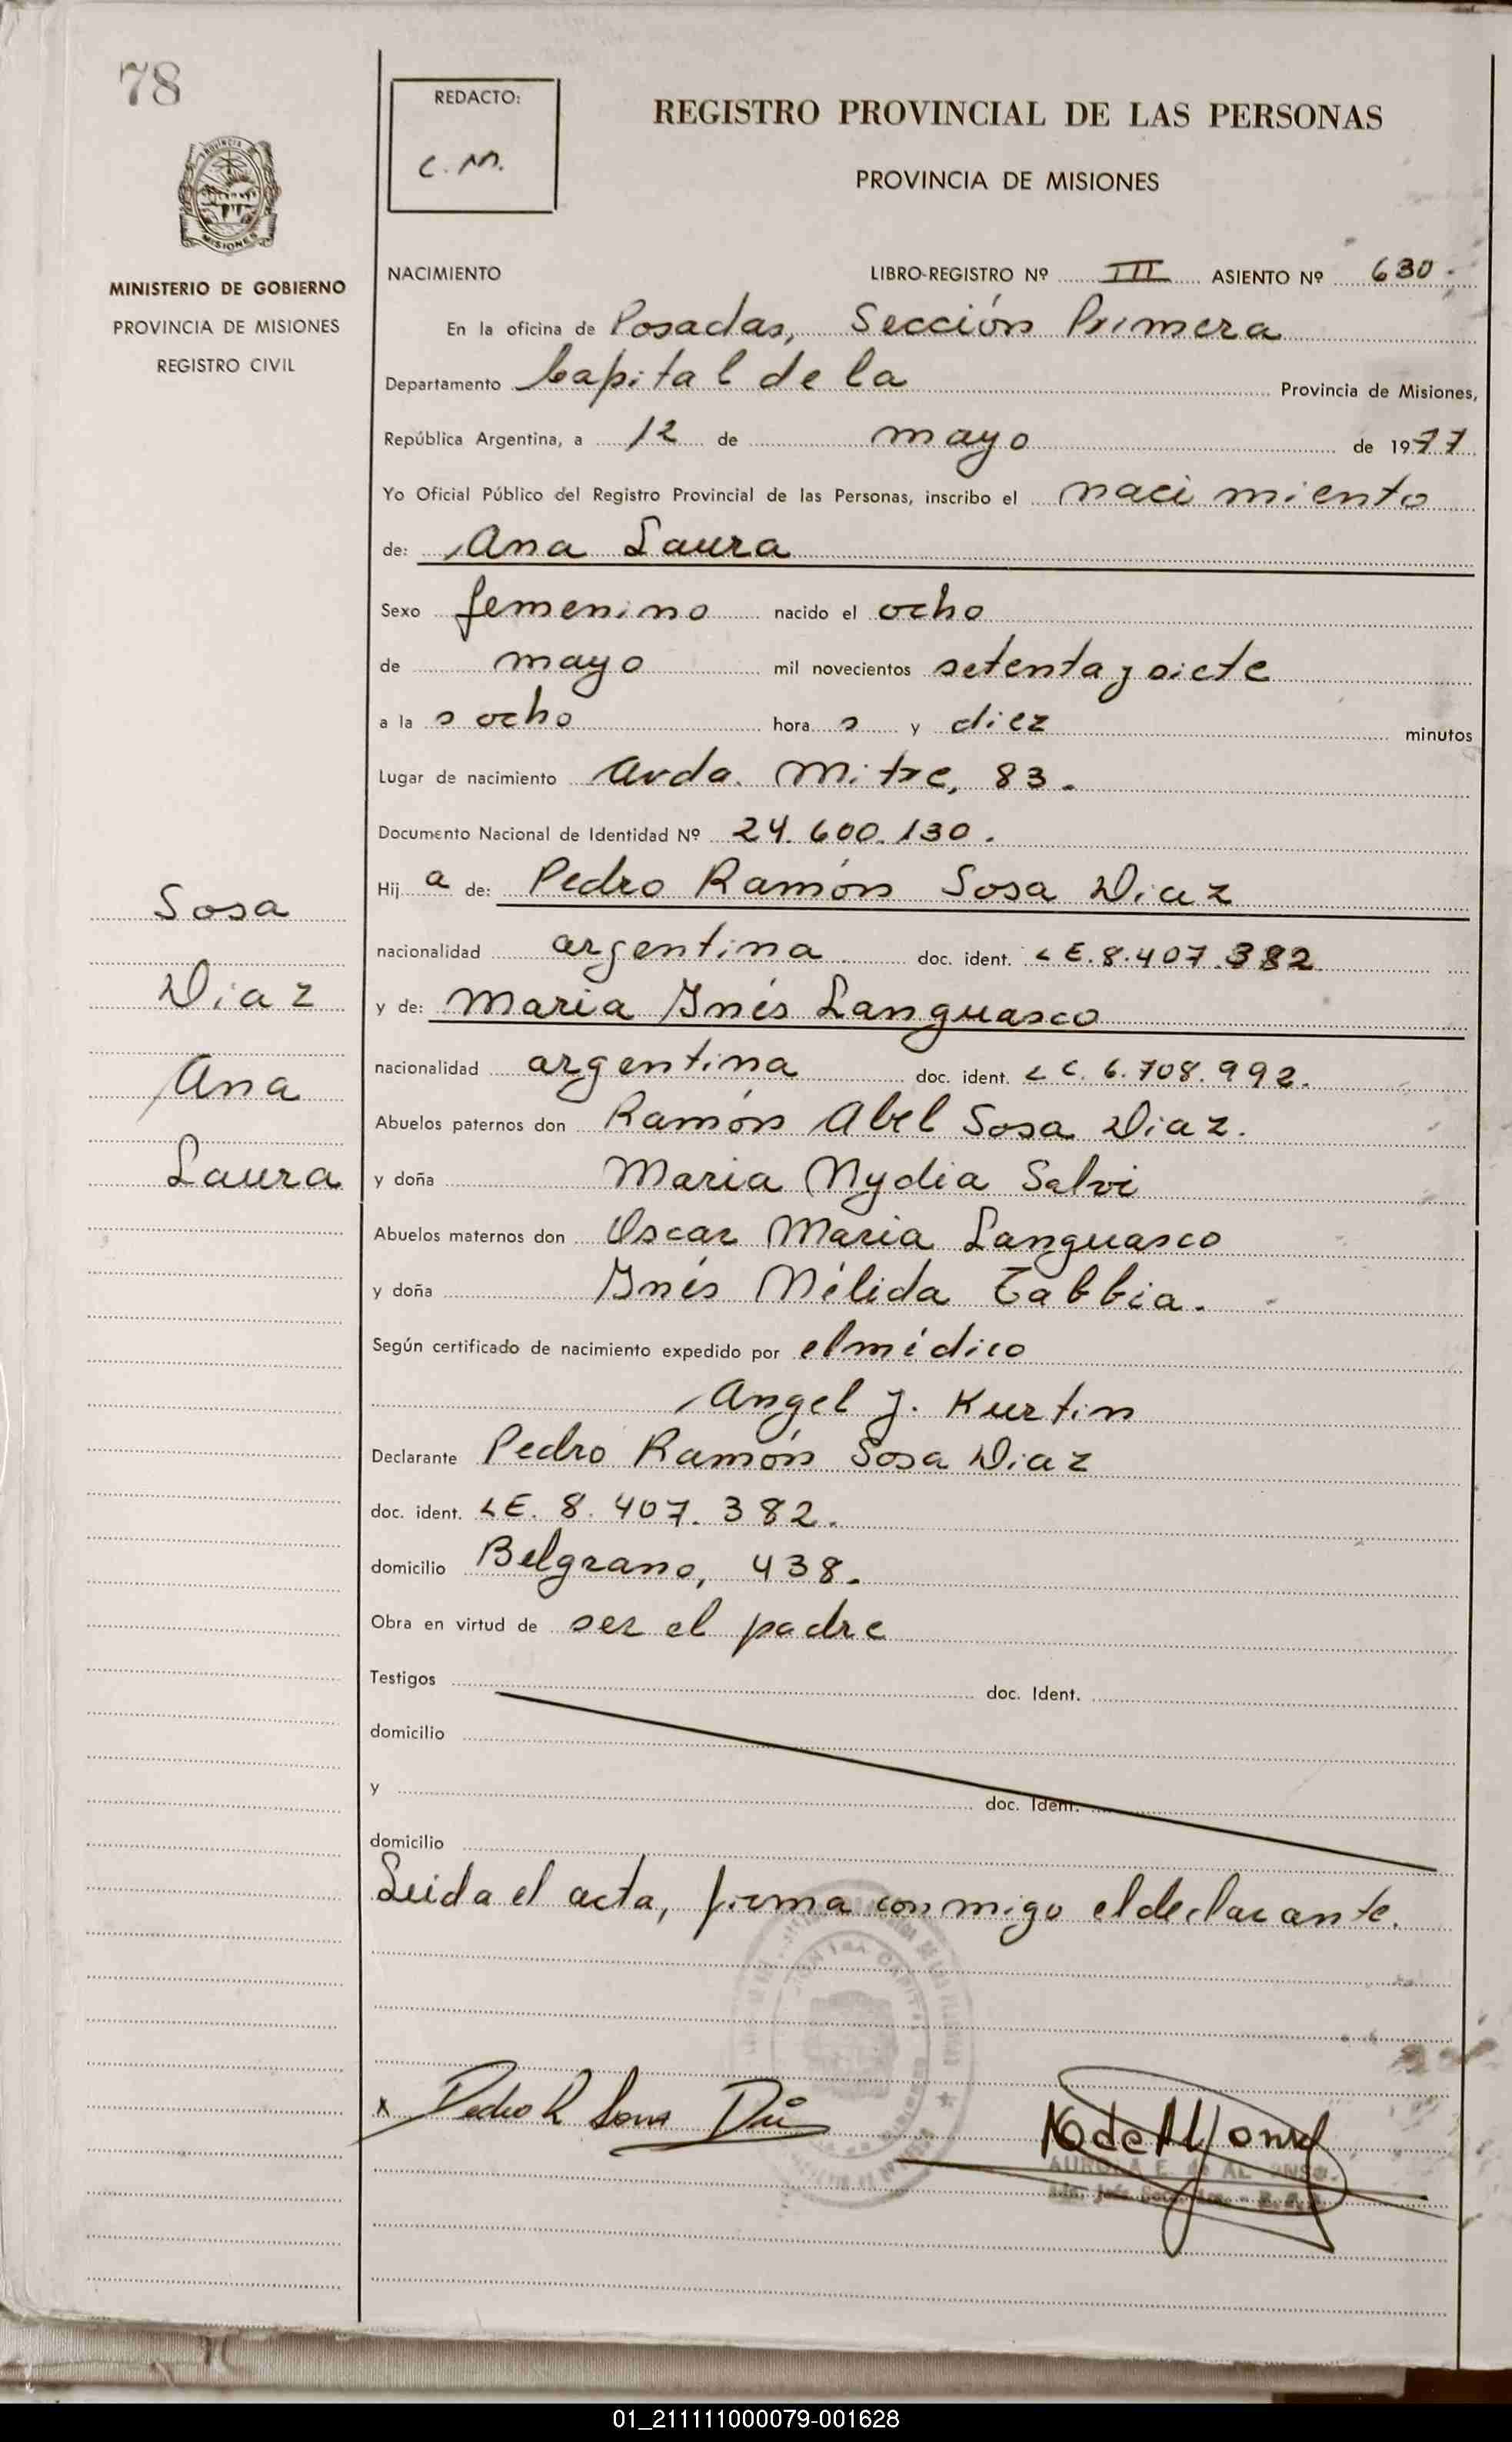 78
REDACTO:
C. M.
REGISTRO PROVINCIAL DE LAS PERSONAS
PROVINCIA DE MISIONES
MISIONES
MINISTERIO DE GOBIERNO
PROVINCIA DE MISIONES
REGISTRO CIVIL
NACIMIENTO LIBRO-REGISTRO Nº III ASIENTO Nº 630.
En la oficina de Posadas, Sección Primera
Departamento Capital de la Provincia de Misiones,
República Argentina, a 12 de mayo de 1977
Yo Oficial Público del Registro Provincial de las Personas, inscribo el nacimiento
de: Ana Laura
Sexo femenino nacido el ocho
de mayo mil novecientos setenta y siete
a la s ocho hora s y diez minutos
Lugar de nacimiento Avda. Mitre, 83.
Documento Nacional de Identidad Nº 24.600.130.
Hij a de: Pedro Ramón Sosa Diaz
nacionalidad argentina doc. ident. LE. 8.407.382
y de: Maria Inés Languasco
nacionalidad argentina doc. ident. LC. 6.708.992.
Abuelos paternos don Ramón Abel Sosa Diaz.
y doña Maria Nydia Salvi
Abuelos maternos don Oscar Maria Languasco
y doña Inés Nélida Tabbia.
Según certificado de nacimiento expedido por el médico
Angel J. Kurtin
Declarante Pedro Ramón Sosa Diaz
doc. ident. LE. 8.407.382.
domicilio Belgrano, 438.
Obra en virtud de ser el padre
Testigos doc. Ident.
domicilio
y doc. Ident.
domicilio
Leida el acta, firma conmigo el declarante.
Sosa
Diaz
Ana
Laura
x Pedro R Sosa Diaz
AURORA E. de ALFONSO
01_211111000079-001628